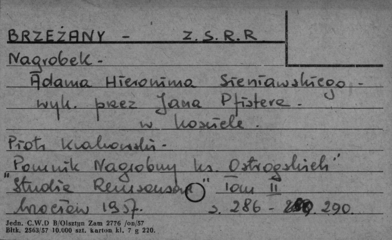 BRZEŻANY - Z.S.R.R
Nagrobek -
Adama Hieronima Sieniawskiego -
wyk. przez Jana Pfistera -
w kościele.
Piotr Krakowski -
"Pomnik Nagrobny ks. Ostrogskich"
"Studia Renesansowe" Tom II
Wrocław 1957. s. 286 - 290.
Jedn. C.W.D B/Olsztyn Zam 2776 /on/57
Bltk. 2563/57 10.000 szt. karton kl. 7 g 220.